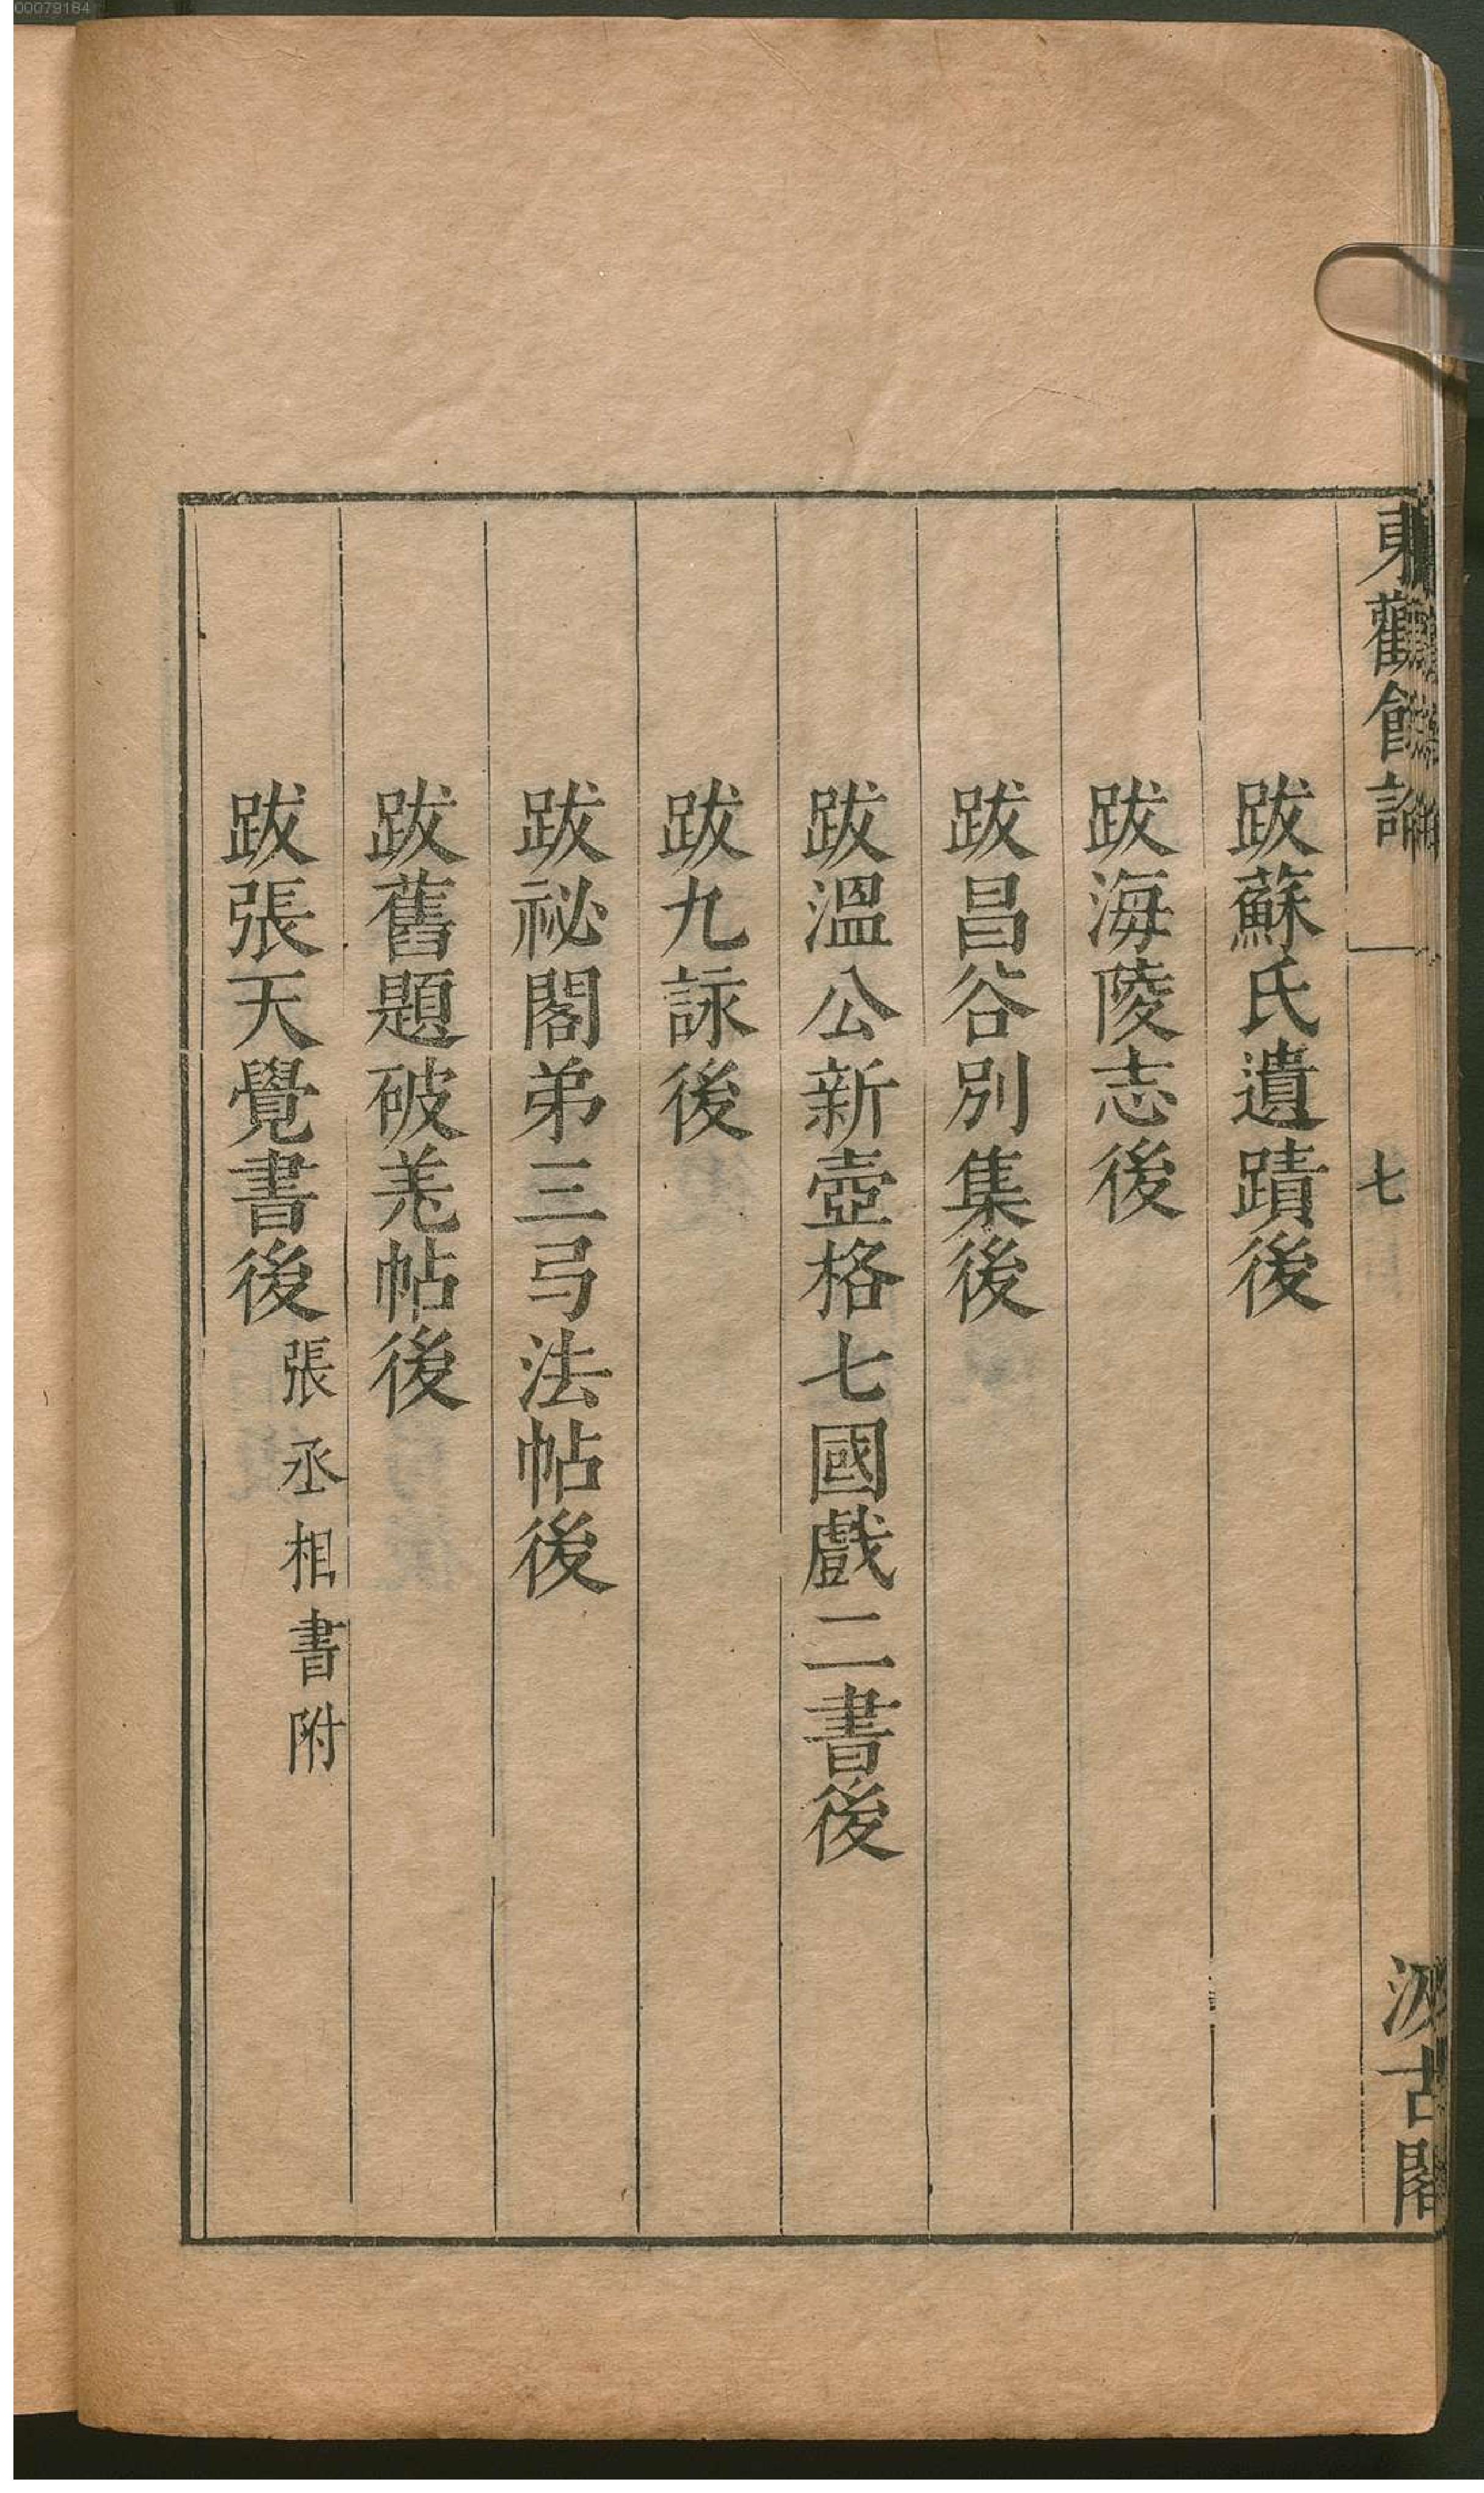 00079184
東觀餘論
七
汲古閣
跋蘇氏遺蹟後
跋海陵志後
跋昌谷別集後
跋溫公新壺格七國戲二書後
跋九詠後
跋祕閣弟三弓法帖後
跋舊題破羌帖後
跋張天覺書後 張丞相書附